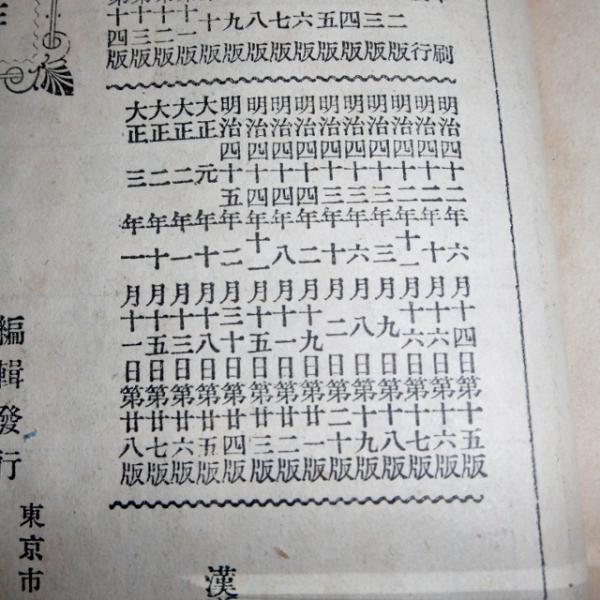 刷
行
二版
三版
四版
五版
六版
七版
八版
九版
十版
十一版
十二版
第十三版
第十四版
明治四十二年六月十四日第十五版
明治四十二年十月十六日第十六版
明治四十二年十一月十六日第十七版
明治四十三年三月九日第十八版
明治四十三年六月八日第十九版
明治四十三年十月二日第二十版
明治四十四年二月十九日第廿一版
明治四十四年八月十一日第廿二版
明治四十四年十一月十五日第廿三版
明治四十五年二月三十日第廿四版
大正元年十月十八日第廿五版
大正二年一月十三日第廿六版
大正二年十月十五日第廿七版
大正三年一月十一日第廿八版
漢
編輯發行
東京市